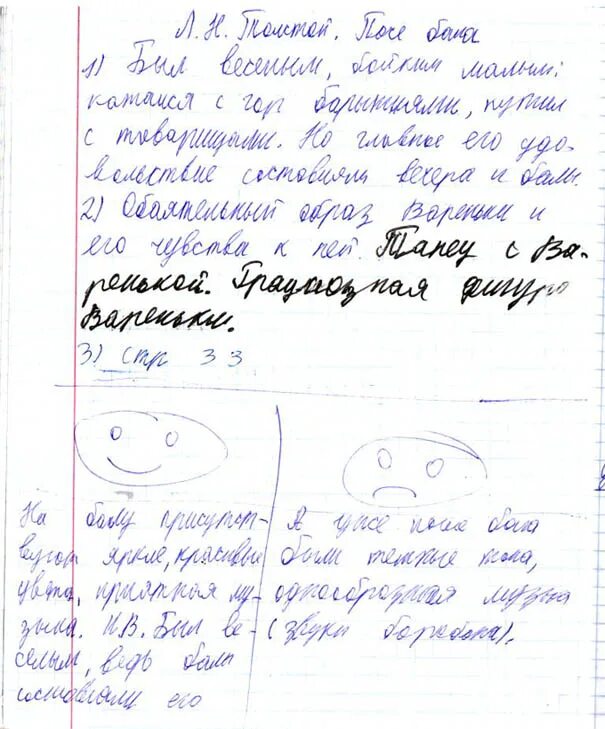 Л. Н. Толстой. После бала
1) Был веселым, бойким малым:
катался с гор барышнями, кутил
с товарищами. Но главное его удо-
вольствие составляли вечера и балы.
2) Обаятельный образ Вареньки и
его чувства к ней. Танец с Ва-
ренькой. Грациозная фигура
Вареньки.
3) стр 33
На балу присутст-
вуют яркие, красивые
цвета, приятная му-
зыка. И.В. Был ве-
селым, ведь балы
составляли его
А уже после бала
были темные тона,
однообразная музыка
(звуки барабана).